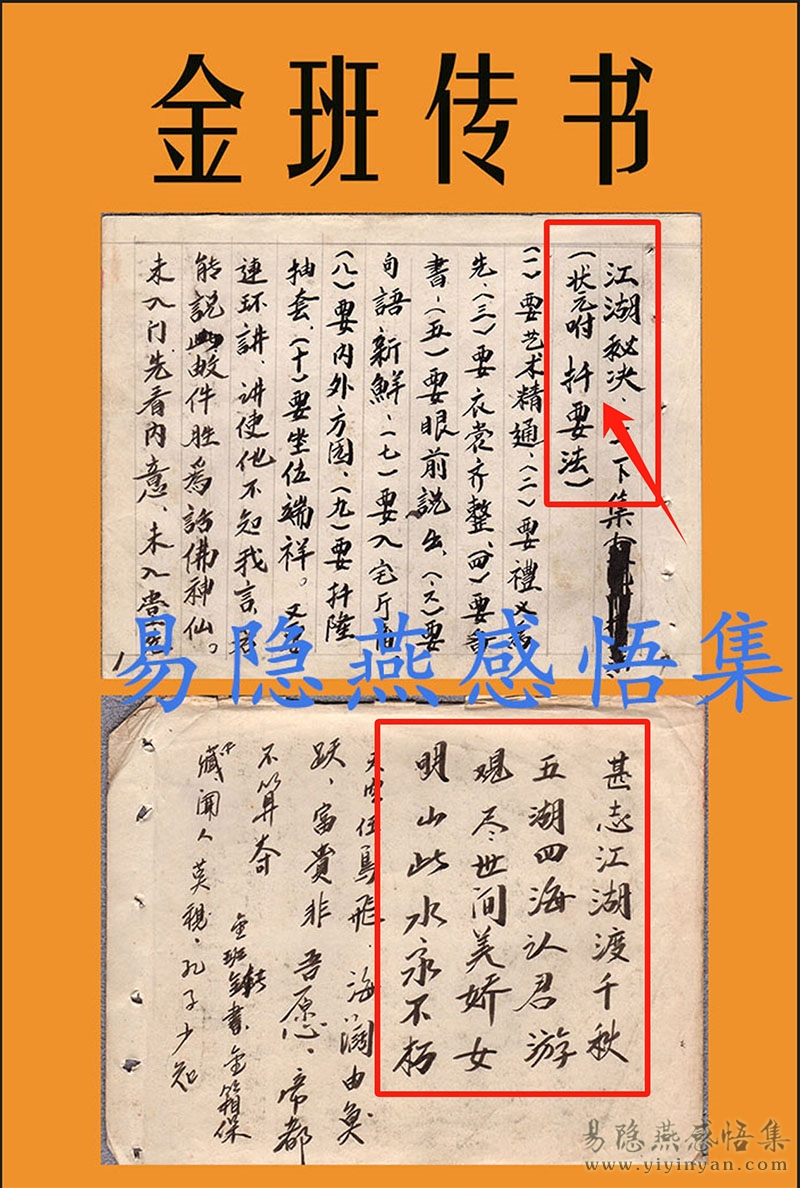 金班传书
江湖秘决、上下集
(状元咐 扦要法)
(一)要艺术精通、(二)要禮义為
先、(三)要衣裳齐整、(四)要
書、(五)要眼前説出、(六)要
句語新鮮、(七)要入宅斤
(八)要内外方园、(九)要扦隆
抽套、(十)要坐位端祥。又
連环講、讲使他不知我言、
能説此故件胜為話佛神仙。
未入门、先看内意、未入
易隐燕感悟集
甚志江湖渡千秋
五湖四海认君游
观尽世间美娇女
明山此水永不朽
天空任鳥飛、海濶由魚
跃、富貴非吾愿、帝都
不算奇
金班 書、金箱保
藏、闻人莫親、孔子少知
易隐燕感悟集
www.yiyinyan.com